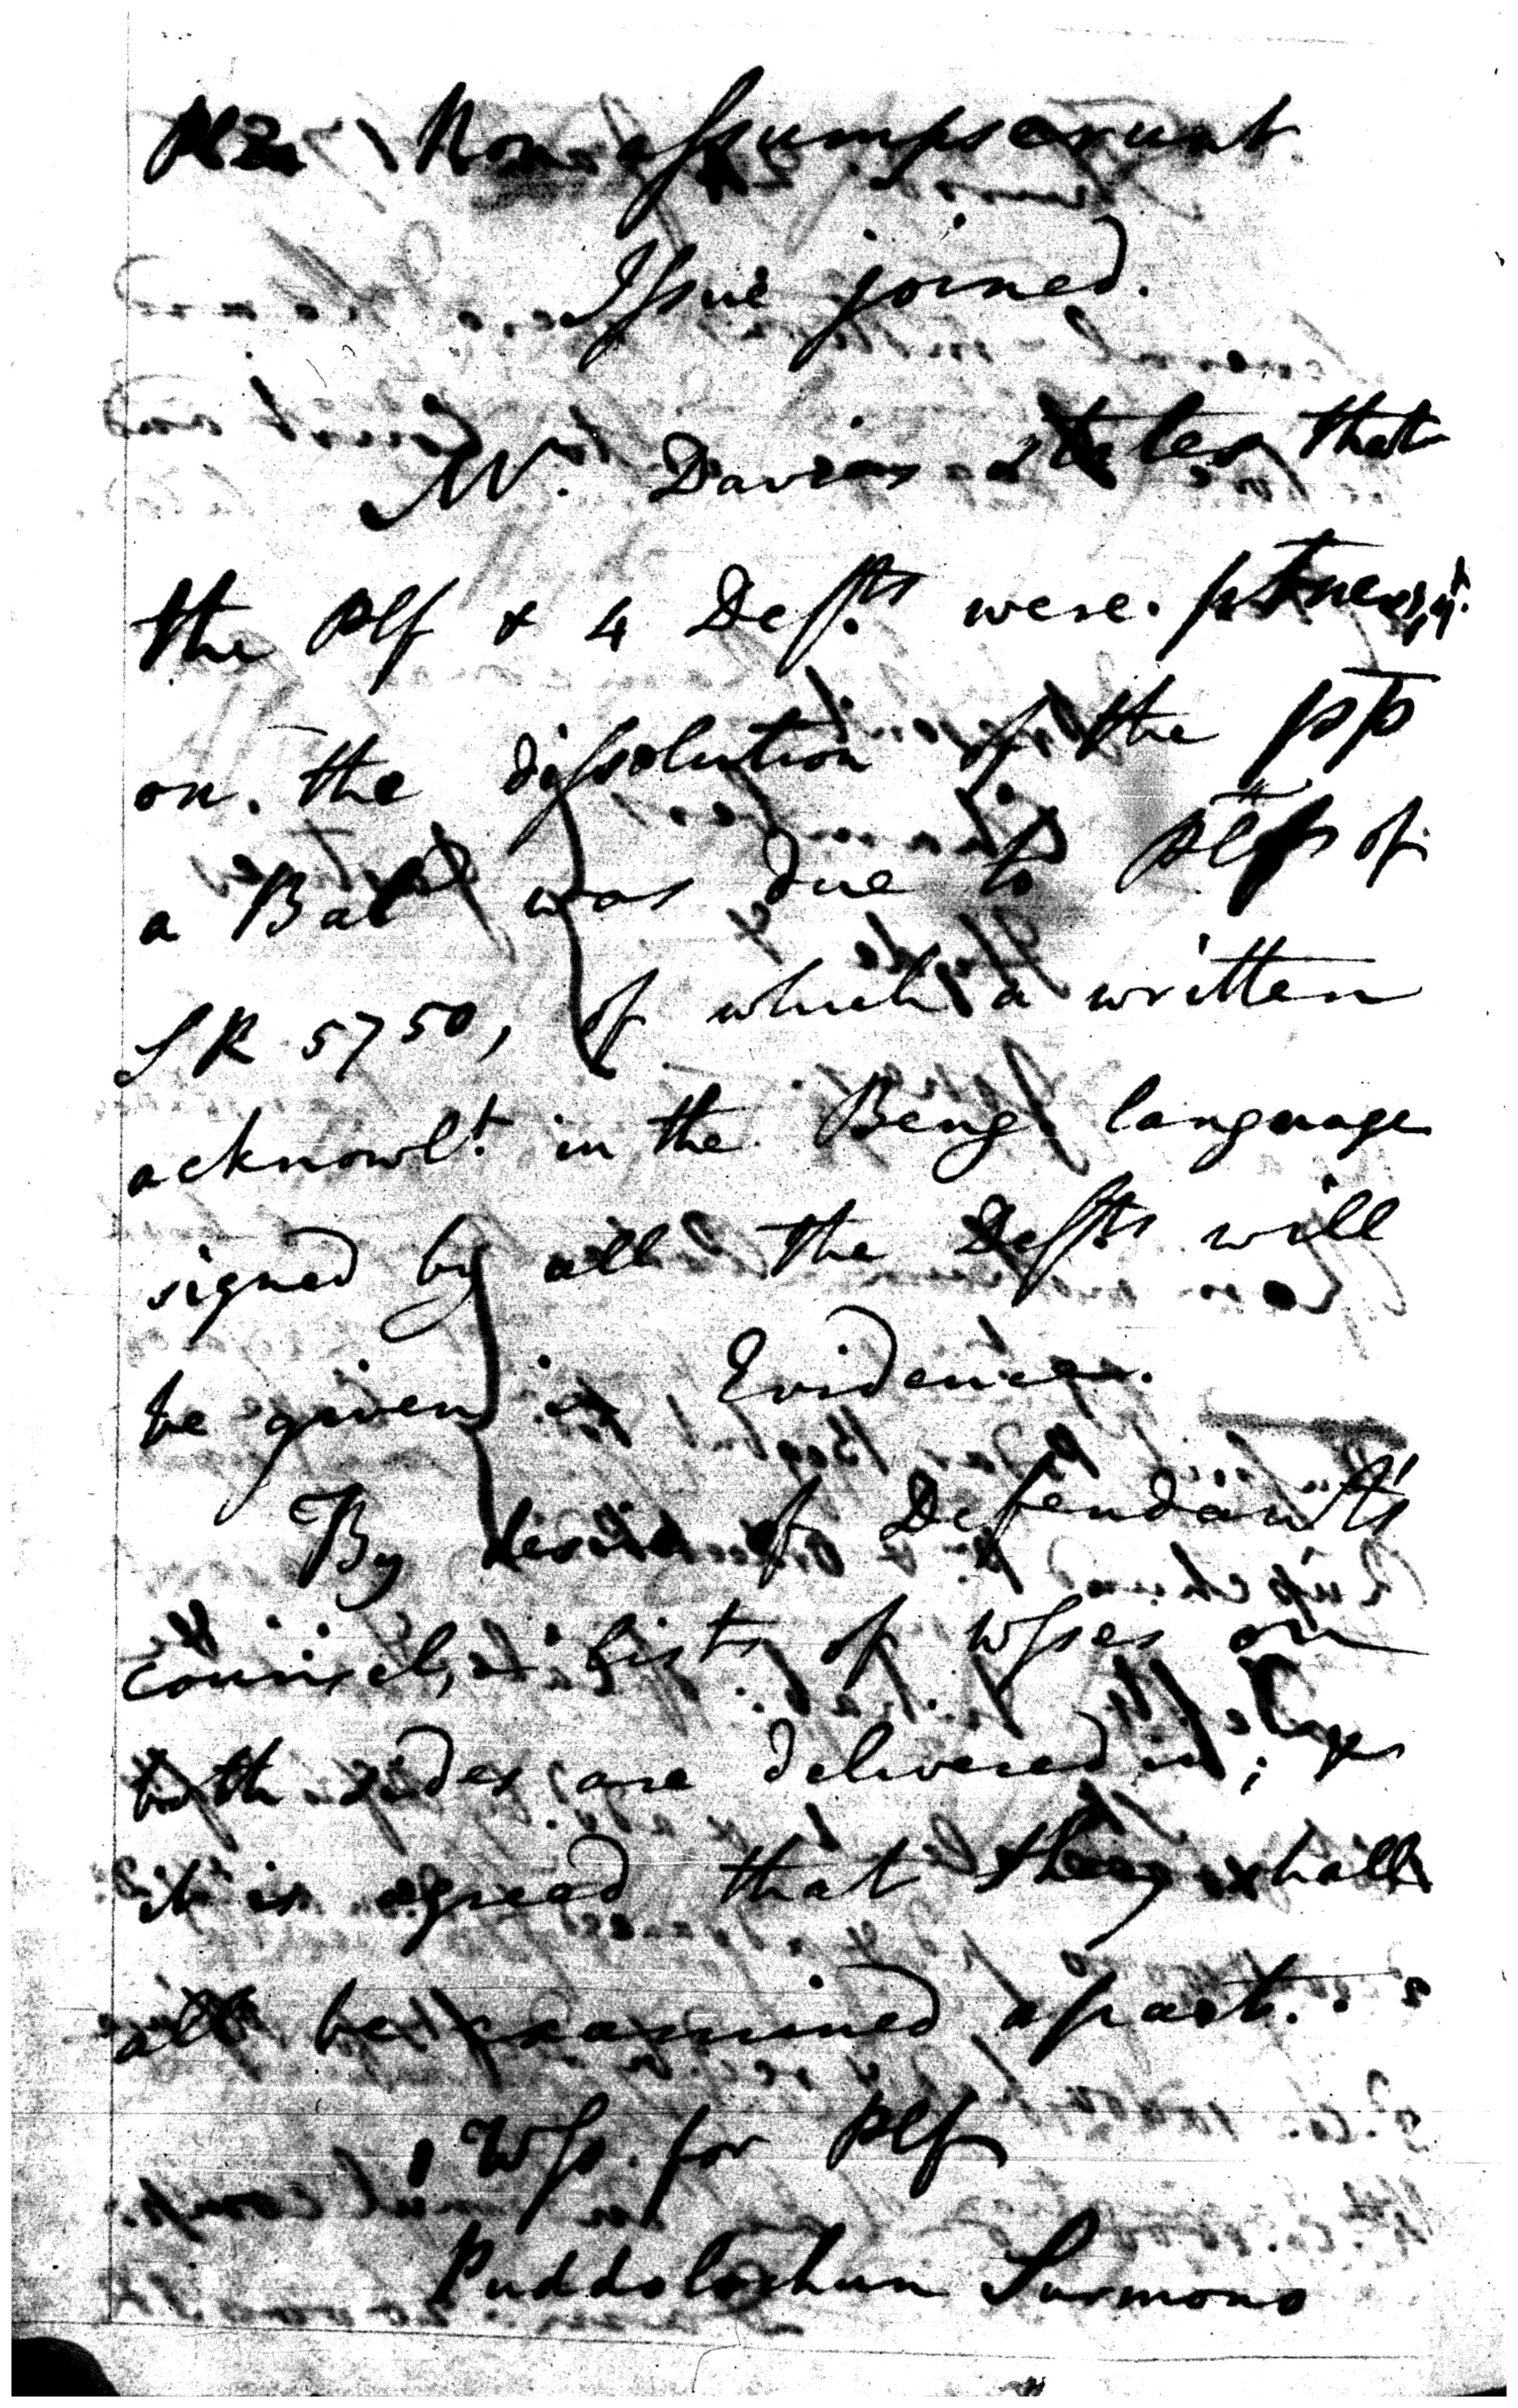 Plea Non assumpserunt
Issue joined.
Mr. Davies states that
the Plf & 4 Defts were ptners, yt.
on the dissolution of the ptp
a Bal was due to Plf of
SR 5750, of which a written
acknowlt. in the Beng language
signed by all the Defts will
be given in Evidence.
By desire of Defendants
counsel, lists of Wsses on
both sides are delivered in; &
it is agreed that they shall
all be examined apart.
Wss. for Plf
Puddolochun Surmono